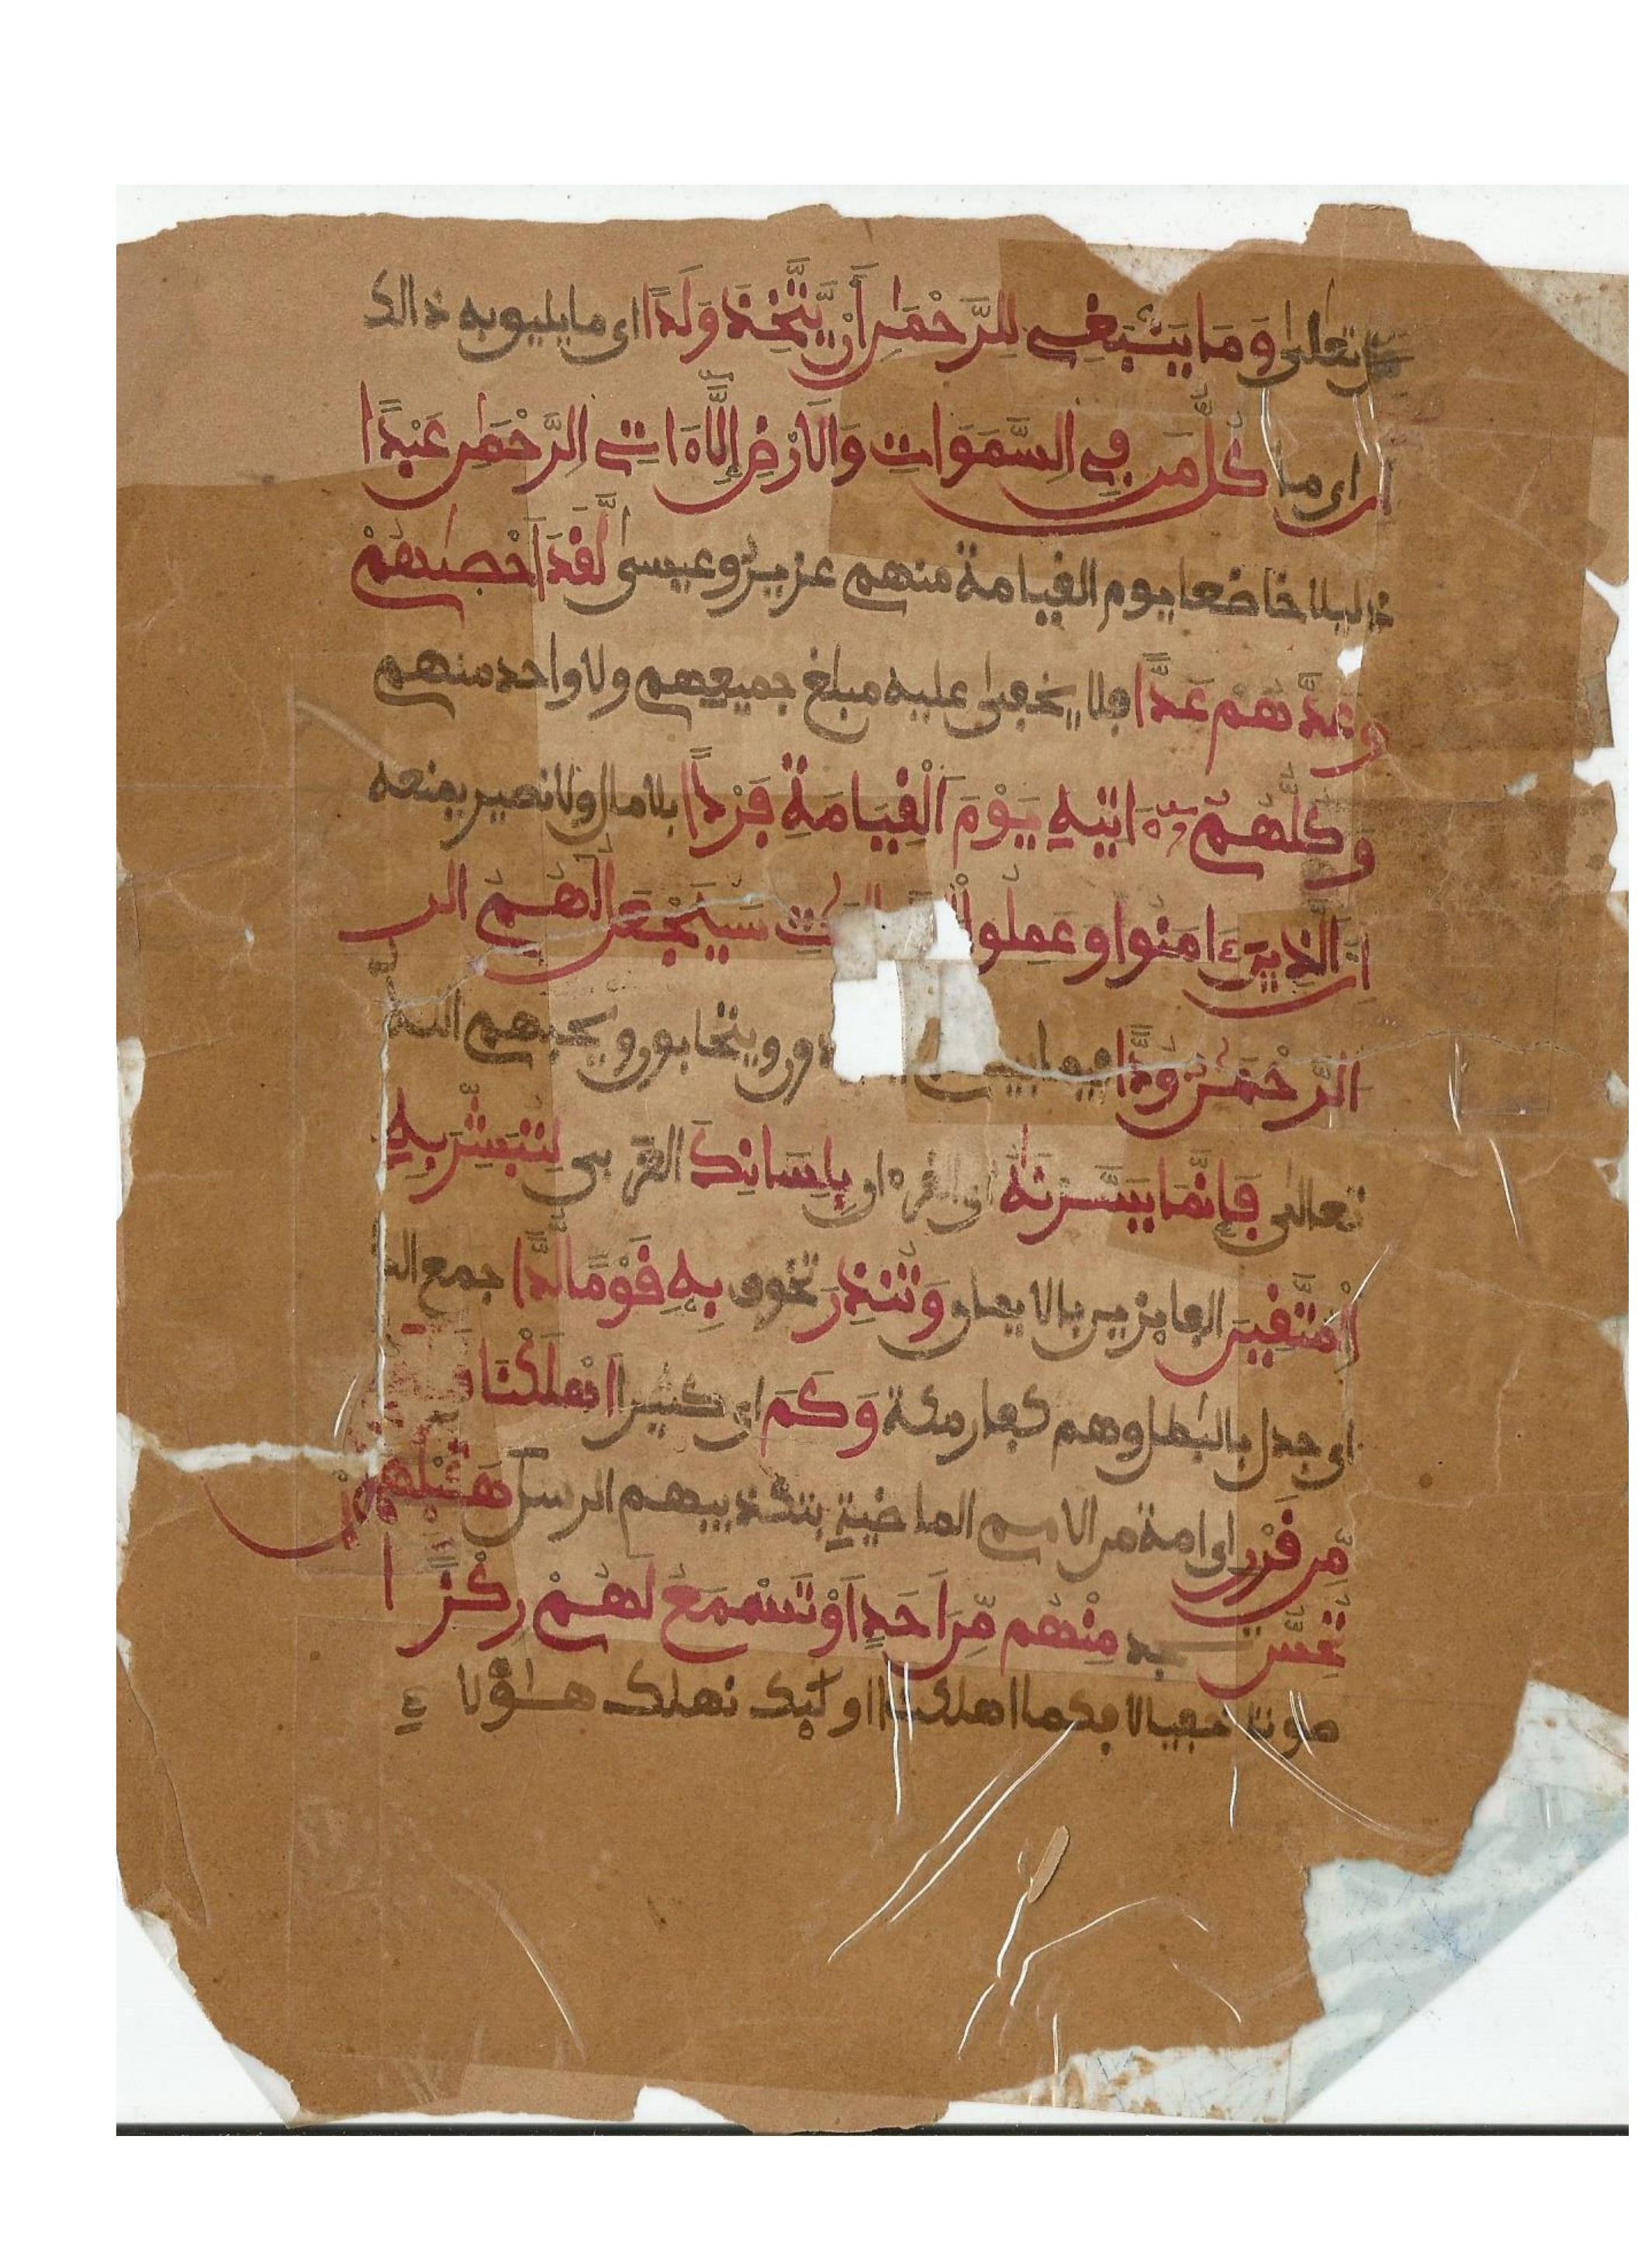 قال تعلى وَمَا يَنۢبَغِے لِلرَّحْمَٰنِ أَنْ يَّتَّخِذَ وَلَدًا اى ما يليو به ذالك
ان اى ما كُلُّ مَن فِے اِلسَّمَوَاتِ وَالَارْضِ إِلَّا ءَاتِے اِلرَّحْمَٰنِ عَبْدًا
ذليلا خاضعا يوم القيامة منهم عزيرٌ وعيسى لَّقَدَ اَحْصَىٰهُمْ
وعَدَّهُمْ عَدًّا فلا يخفى عليه مبلغ جميعهم ولا واحد منهم
وَكُلُّهُمُ ءَاتِيهِ يَوْمَ اَلْقِيَامَةِ فَرْدًا بلا مال ولا نصير يمنعه
اِنَّ الذِينَ ءَامَنُوا وعَمِلُوا اتِ سَيَجْعَلُ لَهُمُ الر
الرَّحْمَٰنُ وُدًّا فيما بينهم ويتحابون ويحبهم الله
تعالى فَإِنَّمَا يَسَّرْنَٰهُ اى القرءان بِلِسَانِكَ العربى لِتُبَشِّرَ بِهِ
اِلْمُتَّقِينَ الفايزين بالايمان وَتُنذِرَ تخوف بِهِ قَوْمًا لُّدًّا جمع الد
اى جدل بالبٰطل وهم كفار مكة وَكَمَ اى كثيرا اَهْلَكْنَا
مِّن قَرْنٍ اى امة من الامم الماضية بتكذيبهم الرسل هَلْ قَبْلَهُم
تُحِسُّ تجد مِنْهُم مِّنَ اَحَدٍ اَوْ تَسْمَعُ لَهُمْ رِكْزًا
صوتا خفيا لا فكما اهلكنا اوليك نهلك هٰؤلاء